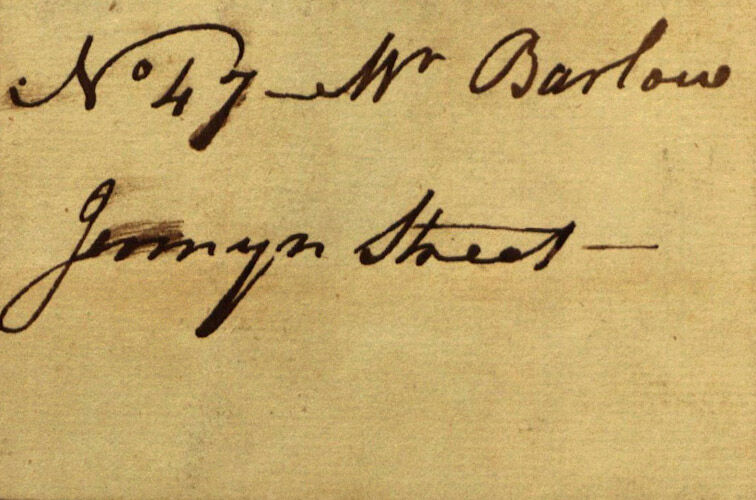 No 47 – Mr Barlow
Jermyn Street –